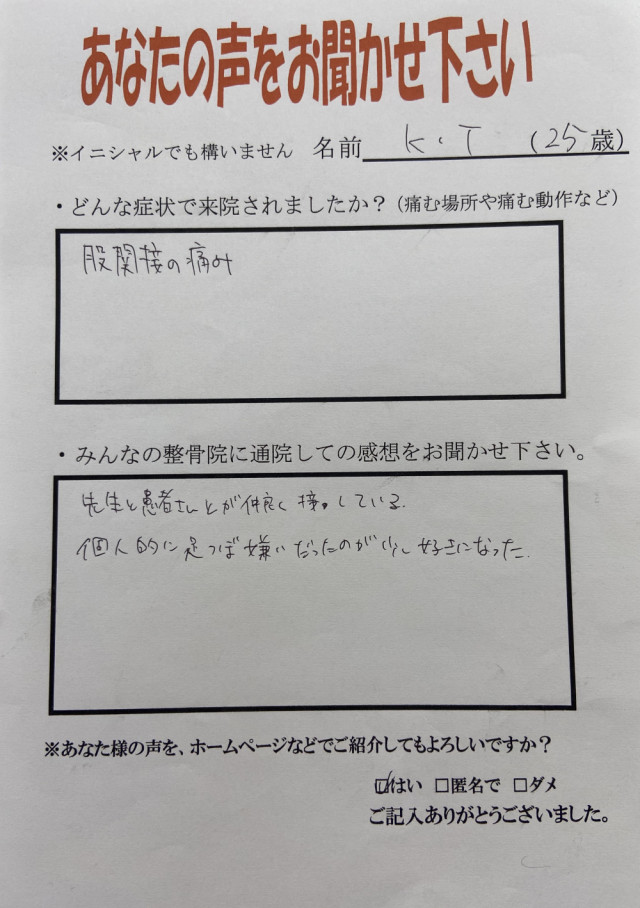 あなたの声をお聞かせ下さい
※イニシャルでも構いません 名前 K・T (25歳)
・どんな症状で来院されましたか?(痛む場所や痛む動作など)
股関接の痛み
・みんなの整骨院に通院しての感想をお聞かせ下さい。
先生と患者さんとが仲良く接している。
個人的に足つぼ嫌いだったのが少し好きになった。
※あなた様の声を、ホームページなどでご紹介してもよろしいですか?
☑はい □匿名で □ダメ
ご記入ありがとうございました。